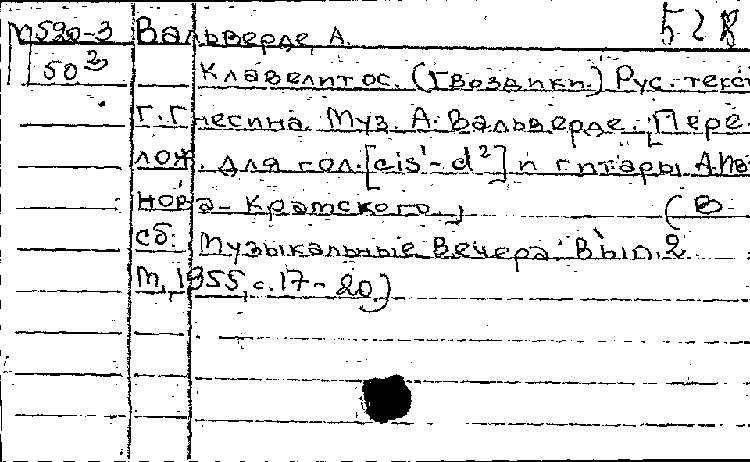 М520-3 Вальверде, А. 528
50³ Клавелитос. (Гвоздики.) Рус. текст
Г. Гнесина. Муз. А. Вальверде. [Пере-
лож. для гол. [cis¹-d²] и гитары А. Ива-
нова-Крамского.] (В
сб.: Музыкальные вечера. Вып. 2
М., 1955, с. 17-20)